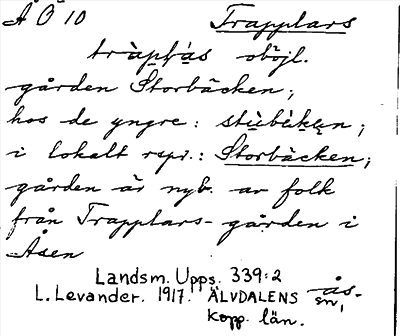 Å Ö 10 Trapplars
tràpḷás oböjl.
gården Storbäcken;
hos de yngre: stùbäkän;
i lokalt rspr.: Storbäcken;
gården är nyb. av folk
från Trapplars-gården i
Åsen
Landsm. Upps. 339:2 ås-
L. Levander. 1917. ÄLVDALENS sn,
kopp. län.